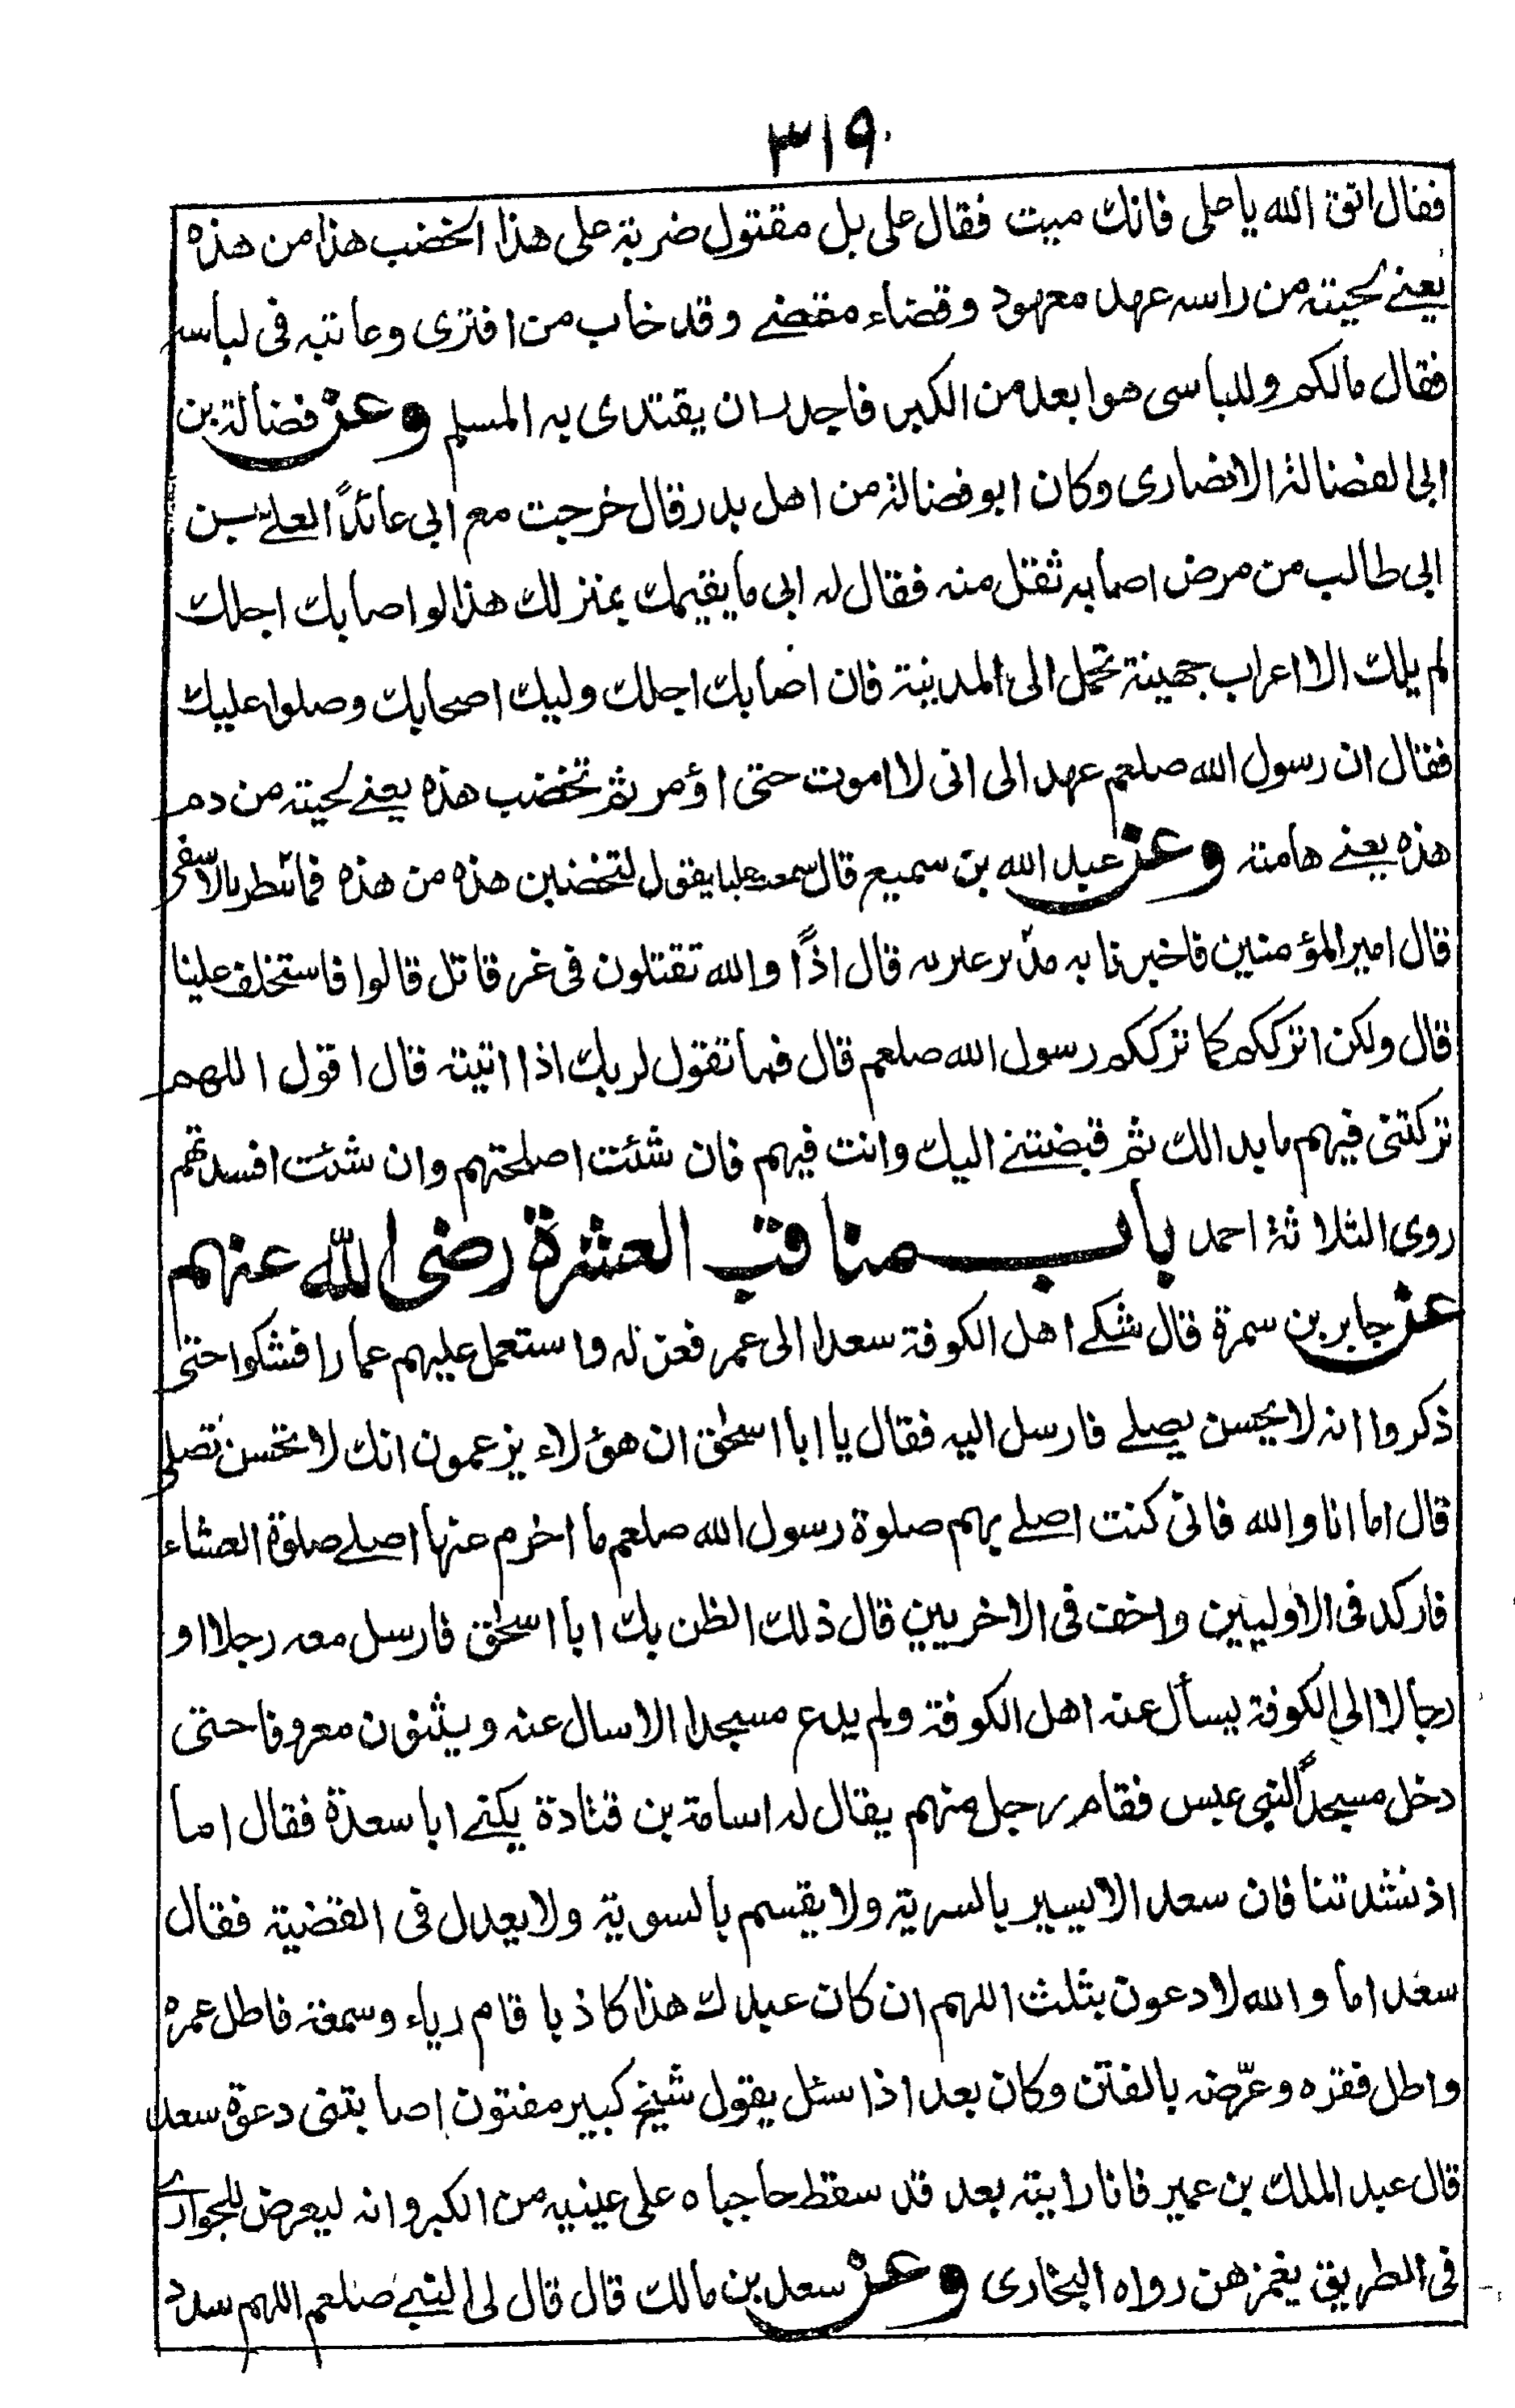 ٣١٩
فقال اتق الله يا على فانك ميت فقال على بل مقتول ضربة على هذا الخضب هذا من هذه
يعنے لحيته من راسه عهد معهود وقضاء مقضے وقد خاب من افترى وعاتبه فى لباسه
فقال مالكم وللباسى هو ابعد من الكبر فاجدر ان يقتدى به المسلم وعن فضالة بن
ابى الفضالة الانصارى وكان ابو فضالة من اهل بدر قال خرجت مع ابى عائدًا لعلے بن
ابى طالب من مرض اصابه ثقل منه فقال له ابى ما يقيمك بمنزلك هذا لو اصابك اجلك
لم يلك الا اعراب جهينة تحمل الى المدينة فان اصابك اجلك وليك اصحابك وصلوا عليك
فقال ان رسول الله صلعم عهد الى انى لا اموت حتى اؤمر ثم تخضب هذه يعنے لحيته من دم
هذه يعنے هامته وعن عبد الله بن سميع قال سمعت عليا يقول لتخضبن هذه من هذه فما
قال امير المؤمنين فاخبرنا به قال اذًا والله تقتلون فى غير قاتل قالوا فاستخلف علينا
قال ولكن اترككم كما ترككم رسول الله صلعم قال فما تقول لربك اذا اتيته قال اقول اللهم
تركتنى فيهم ما بدالك ثم قبضتنے اليك وانت فيهم فان شئت اصلحتهم وان شئت افسدتهم
روى الثلاثة احمد باب مناقب العشرة رضى الله عنهم
عن جابر بن سمرة قال شكے اهل الكوفة سعدا الى عمر فعزله واستعمل عليهم عمارا فشكوا حتى
ذكروا انه لا يحسن يصلے فارسل اليه فقال يا ابا اسحٰق ان هؤلاء يزعمون انك لا تحسن تصلى
قال اما انا والله فانى كنت اصلے بهم صلوة رسول الله صلعم ما اخرم عنها اصلے صلوة العشاء
فاركد فى الاوليين واخف فى الاخريين قال ذلك الظن بك ابا اسحٰق فارسل معه رجلا او
رجالا الى الكوفة يسأل عنه اهل الكوفة ولم يدع مسجدا الا سال عنه ويثنون معروفا حتى
دخل مسجدًا لبنى عبس فقام رجل منهم يقال له اسامة بن قتادة يكنے ابا سعدة فقال اما
اذ نشدتنا فان سعدا لا يسير بالسرية ولا يقسم بالسوية ولا يعدل فى القضية فقال
سعد اما والله لادعون بثلث اللهم ان كان عبدك هذا كاذبا قام رياء وسمعة فاطل عمره
واطل فقره وعرّضه بالفتن وكان بعد اذا سئل يقول شيخ كبير مفتون اصابتنى دعوة سعد
قال عبد الملك بن عمير فانا رايته بعد قد سقط حاجباه على عينيه من الكبر وانه ليعرض للجوارے
فى الطريق يغمزهن رواه البخارى وعن سعد بن مالك قال قال لى النبے صلعم اللهم سدد